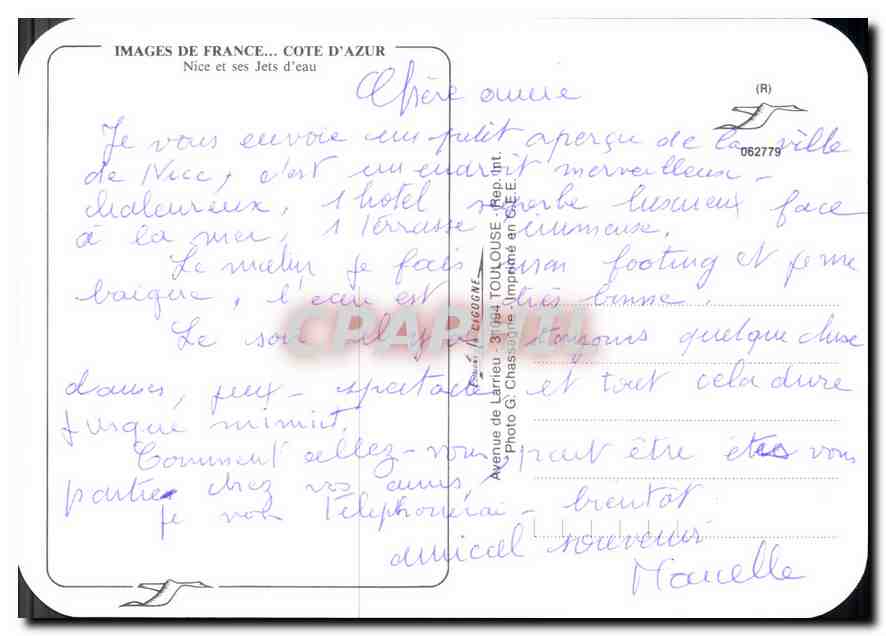 IMAGES DE FRANCE... COTE D'AZUR
Nice et ses Jets d'eau
(R)
062779
Chère amie
Je vous envoie un petit aperçu de la ville
de Nice, c'est un endroit merveilleux -
chaleureux, 1 hôtel superbe luxueux face
à la mer, 1 Terrasse immense.
Le matin je fais mon footing et je me
baigne, l'eau est très bonne.
Le soir il y a toujours quelque chose
danses, jeux - spectacle, et tout cela dure
jusque minuit.
Comment allez-vous, peut être êtes vous
partie chez vos amis,
je vous Téléphonerai - bientôt
amical souvenir
Marcelle
Editions "La CIGOGNE"
Avenue de Larrieu - 31094 TOULOUSE - Rep. Int.
Photo G. Chassagne - Imprimé en C.E.E.
CPARAMA